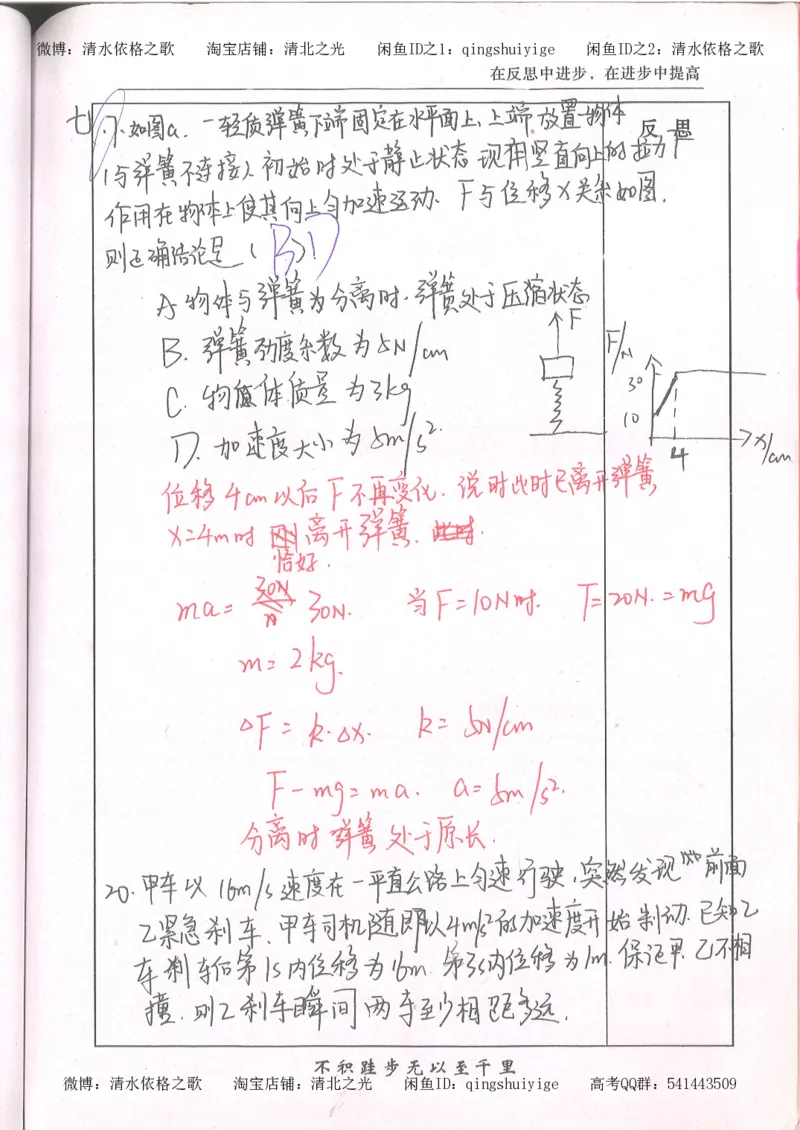 微博：清水依格之歌 淘宝店铺：清北之光 闲鱼ID之1：qingshuiyige 闲鱼ID之2：清水依格之歌
在反思中进步，在进步中提高
反思
七
1. 如图a. 一轻质弹簧下端固定在水平面上，上端放置一物体
(与弹簧不连接)初始时处于静止状态 现用竖直向上的拉力F
作用在物体上使其向上匀加速运动. F与位移X关系如图.
则正确结论是 (BD)
A. 物体与弹簧分离时. 弹簧处于压缩状态
B. 弹簧劲度系数为5N/cm
C. 物体质量为3kg
D. 加速度大小为5m/s².
F
F/N
30
10
4
x/cm
位移4cm以后F不再变化. 说时此时已离开弹簧
X=4m时 离开弹簧.
恰好.
ma= 30N. 当F=10N时. F=20N.=mg
m=2kg.
ΔF=k·Δx. k=5N/cm
F-mg=ma. a=5m/s².
分离时弹簧处于原长.
20. 甲车以16m/s速度在一平直公路上匀速行驶，突然发现前面
乙紧急刹车. 甲车司机随即以4m/s²的加速度开始制动. 已知乙
车刹车后第1s内位移为16m. 第3s内位移为1m. 保证甲. 乙不相
撞. 则乙刹车瞬间两车至少相距多远.
不积跬步无以至千里
微博：清水依格之歌 淘宝店铺：清北之光 闲鱼ID：qingshuiyige 高考QQ群：541443509